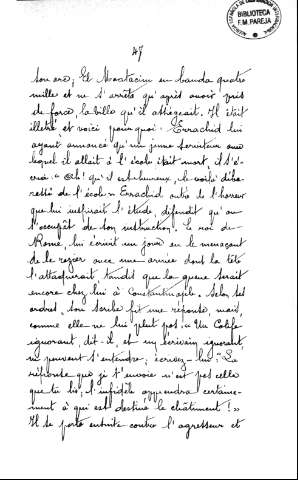 BIBLIOTECA
F. M. PAREJA
47
son arc; Et Moutacim en banda quatre
mille et ne s'arrêta qu'après avoir pris
de force la ville qu'il assiégeait. Il était
illétré et voici pourquoi. Errachid lui
ayant annoncé qu'un jeune serviteur avec
lequel il allait à l'école était mort, il s'é-
cria: « Ah! qu'il est heureux, le voilà déba-
rassé de l'école » Errachid outré de l'horreur
que lui inspirait l'étude, défendit qu'on
s'occupât de son instruction. Le roi de
Rome, lui écrivit un jour en le menaçant
de le razzier avec une armée dont la tête
l'attaquerait tandis que la queue serait
encore chez lui à Constantinople. Selon ses
ordres, son scribe fit une réponse, mais,
comme elle ne lui plut pas: « Un Calife
ignorant, dit-il, et un écrivain ignorant,
ne peuvent s'entendre; écrivez-lui: "La
réponse que je t'envoie n'est pas celle
que tu lis; l'infidèle apprendra certaine-
ment à qui est destiné le châtiment! »
Il se porta ensuite contre l'agresseur et